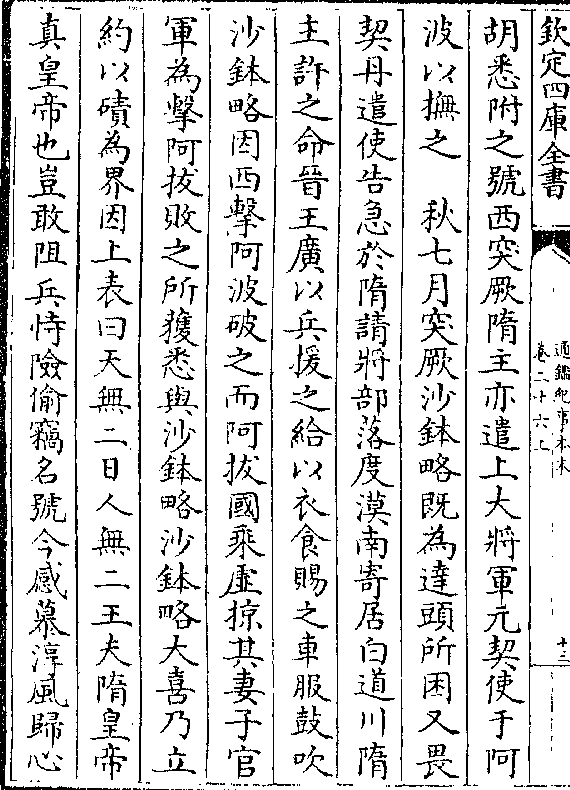 欽定四庫全書
通鑑紀事本末
卷二十六上
十三
胡悉附之號西突厥隋主亦遣上大將軍元契使于阿
波以撫之　秋七月突厥沙鉢略既為達頭所困又畏
契丹遣使告急於隋請將部落度漠南寄居白道川隋
主許之命晉王廣以兵援之給以衣食賜之車服鼓吹
沙鉢略因西擊阿波破之而阿拔國乘虛掠其妻子官
軍為擊阿拔敗之所獲悉與沙鉢略沙鉢略大喜乃立
約以磧為界因上表曰天無二日人無二王夫隋皇帝
真皇帝也豈敢阻兵恃險偷竊名號今感慕淳風歸心